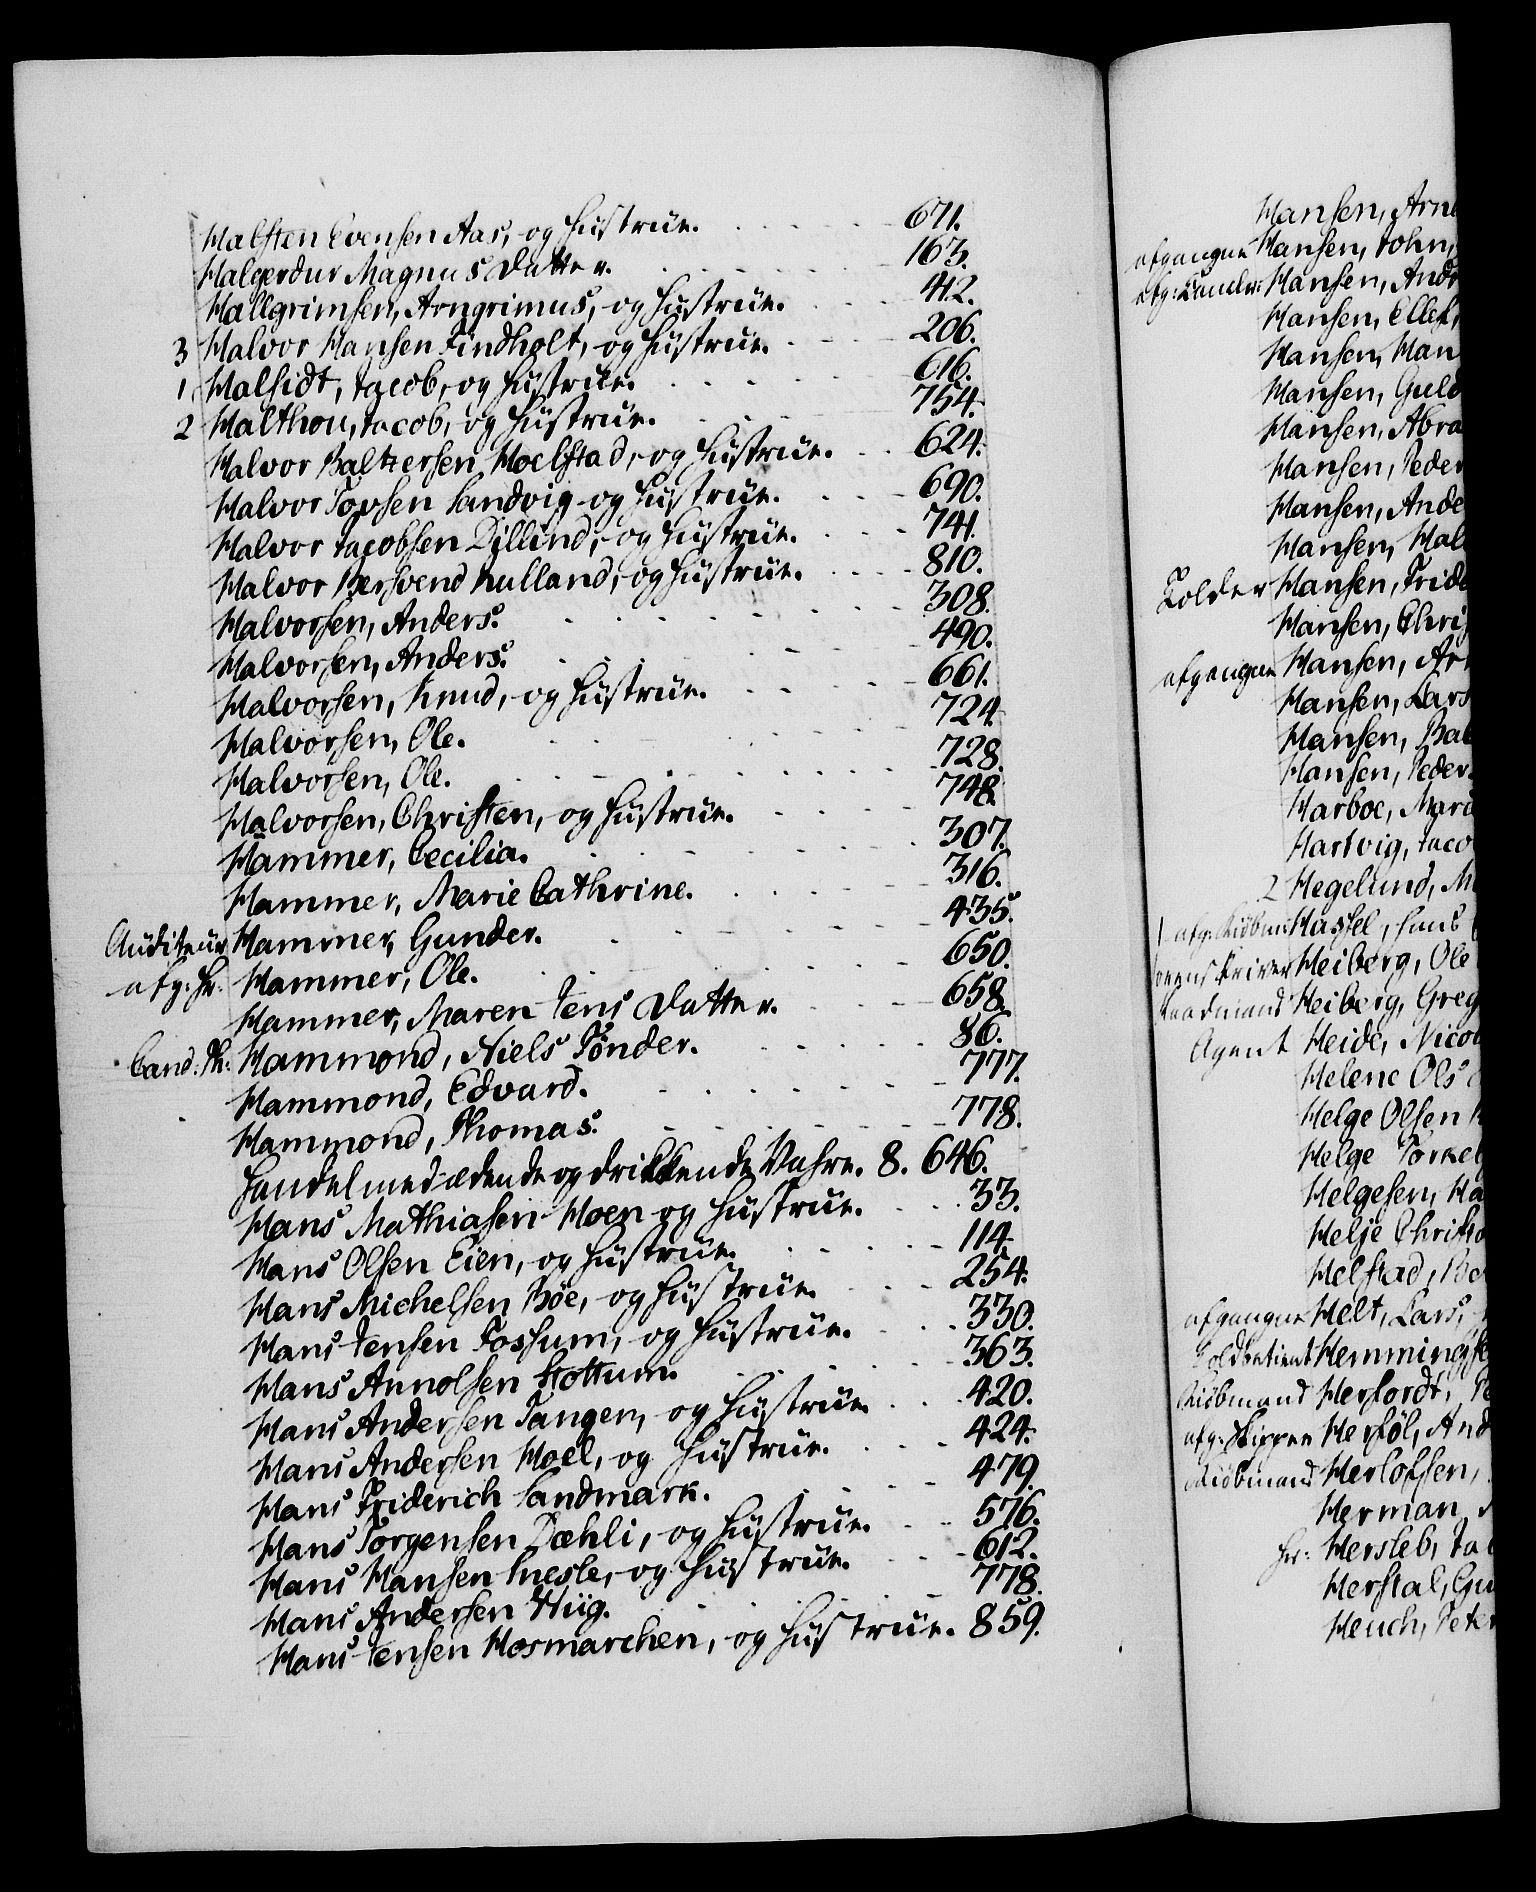 Halsten Evensen Aas, og Hustrue. 671.
Halgerdur Magnus Datter. 163.
Hallgrimsen, Arngrimus, og Hustrue. 412.
3 Halvor Hansen Findholt, og Hustrue. 206.
1 Halsidt, Jacob, og Hustrue. 616.
2 Halthou, Jacob, og Hustrue. 754.
Halvor Baltzersen Hoelstad, og Hustrue. 624.
Halvor Tovsen Sandvig og Hustrue. 690.
Halvor Jacobsen Dillind, og Hustrue. 741.
Halvor Bersvend Hulland, og Hustrue. 810.
Halvorsen, Anders. 308.
Halvorsen, Anders. 490.
Halvorsen, Knud, og Hustrue. 661.
Halvorsen, Ole. 724.
Halvorsen, Ole. 728.
Halvorsen, Christen, og Hustrue. 748.
Hammer, Cecilia. 307.
Hammer, Marie Cathrine. 316.
Auditeur Hammer, Gunder. 435.
afg: Hr: Hammer, Ole. 650.
Hammer, Maren Jens Datter. 658.
Cand: Th: Hammond, Niels Tönder. 86.
Hammond, Edvard. 777.
Hammond, Thomas. 778.
Handel med ædende og drikkende Vahre. 8. 646.
Hans Mathiasen Moen og Hustrue. 33.
Hans Olsen Eien, og Hustrue. 114.
Hans Michelsen Böe, og Hustrue. 254.
Hans Jensen Fossum, og Hustrue. 330.
Hans Annolsen Stottum. 363.
Hans Andersen Tangen, og Hustrue. 420.
Hans Andersen Hoel, og Hustrue. 424.
Hans Friderich Landmark. 479.
Hans Jörgensen Dæhli, og Hustrue. 576.
Hans Hansen Snesle, og Hustrue. 612.
Hans Andersen Stiig. 778.
Hans Jensen Hosmarchen, og Hustrue. 859.
Hansen,
afgangne Hansen, John,
Hansen,
Hansen, Ellef,
Hansen,
Hansen,
Hansen,
Hansen, Peder
Hansen,
Hansen,
Tolder Hansen,
Hansen,
afgangne Hansen,
Hansen, Lars
Hansen,
Hansen, Peder
Harboe,
Hartvig,
2 Hegelund,
1 Hassel, Hans
Heiberg, Ole
Heiberg,
Agent Heide,
Helene Ols
Helge Olsen
Helge
Helgesen,
Helje
Helstad,
afgangne Helt, Lars,
Hemmingsen
Kiöbmand Herfordt,
afg: Skipper Herföl,
Kiöbmand Herlofsen,
Herman
Hr: Hersleb,
Herstal,
Heuch,